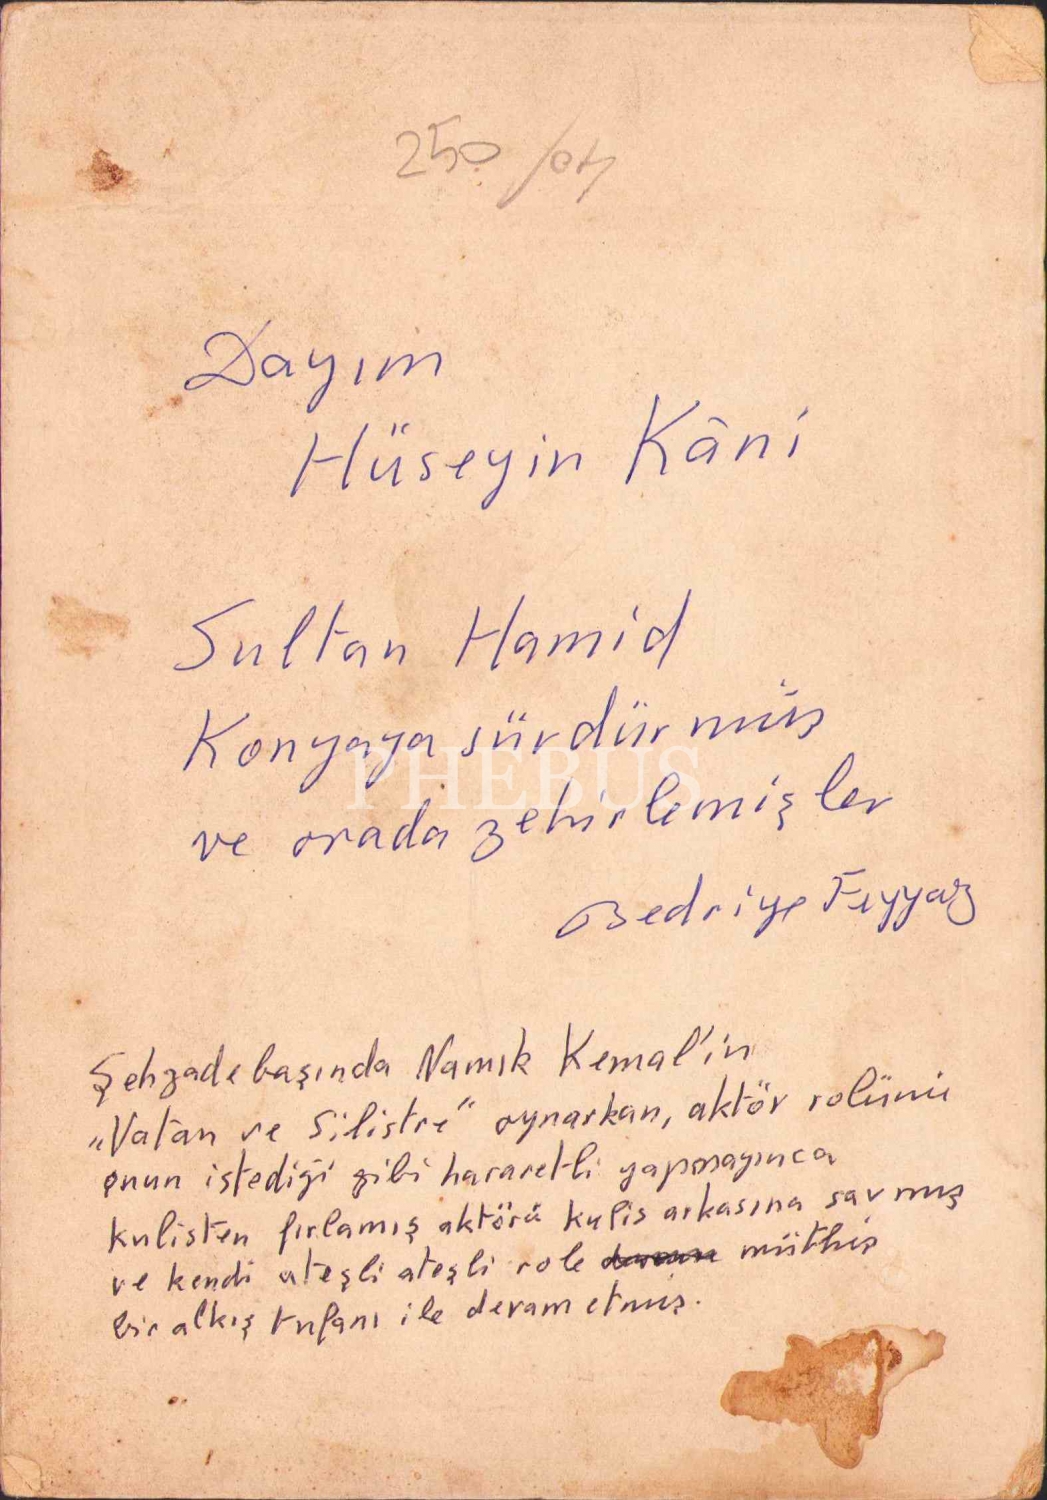 250
Dayım
Hüseyin Kâni
Sultan Hamid
Konyaya sürdürmüş
PHEBUS
ve orada zehirlemişler
Bedriye Feyyaz
Şehzadebaşında Namık Kemal'in
„Vatan ve Silistre" oynarkan, aktör rolünü
onun istediği gibi hararetli yapmayınca
kulisten fırlamış aktörü kulis arkasına savmış
ve kendi ateşli ateşli role müthiş
bir alkış tufanı ile devam etmiş.